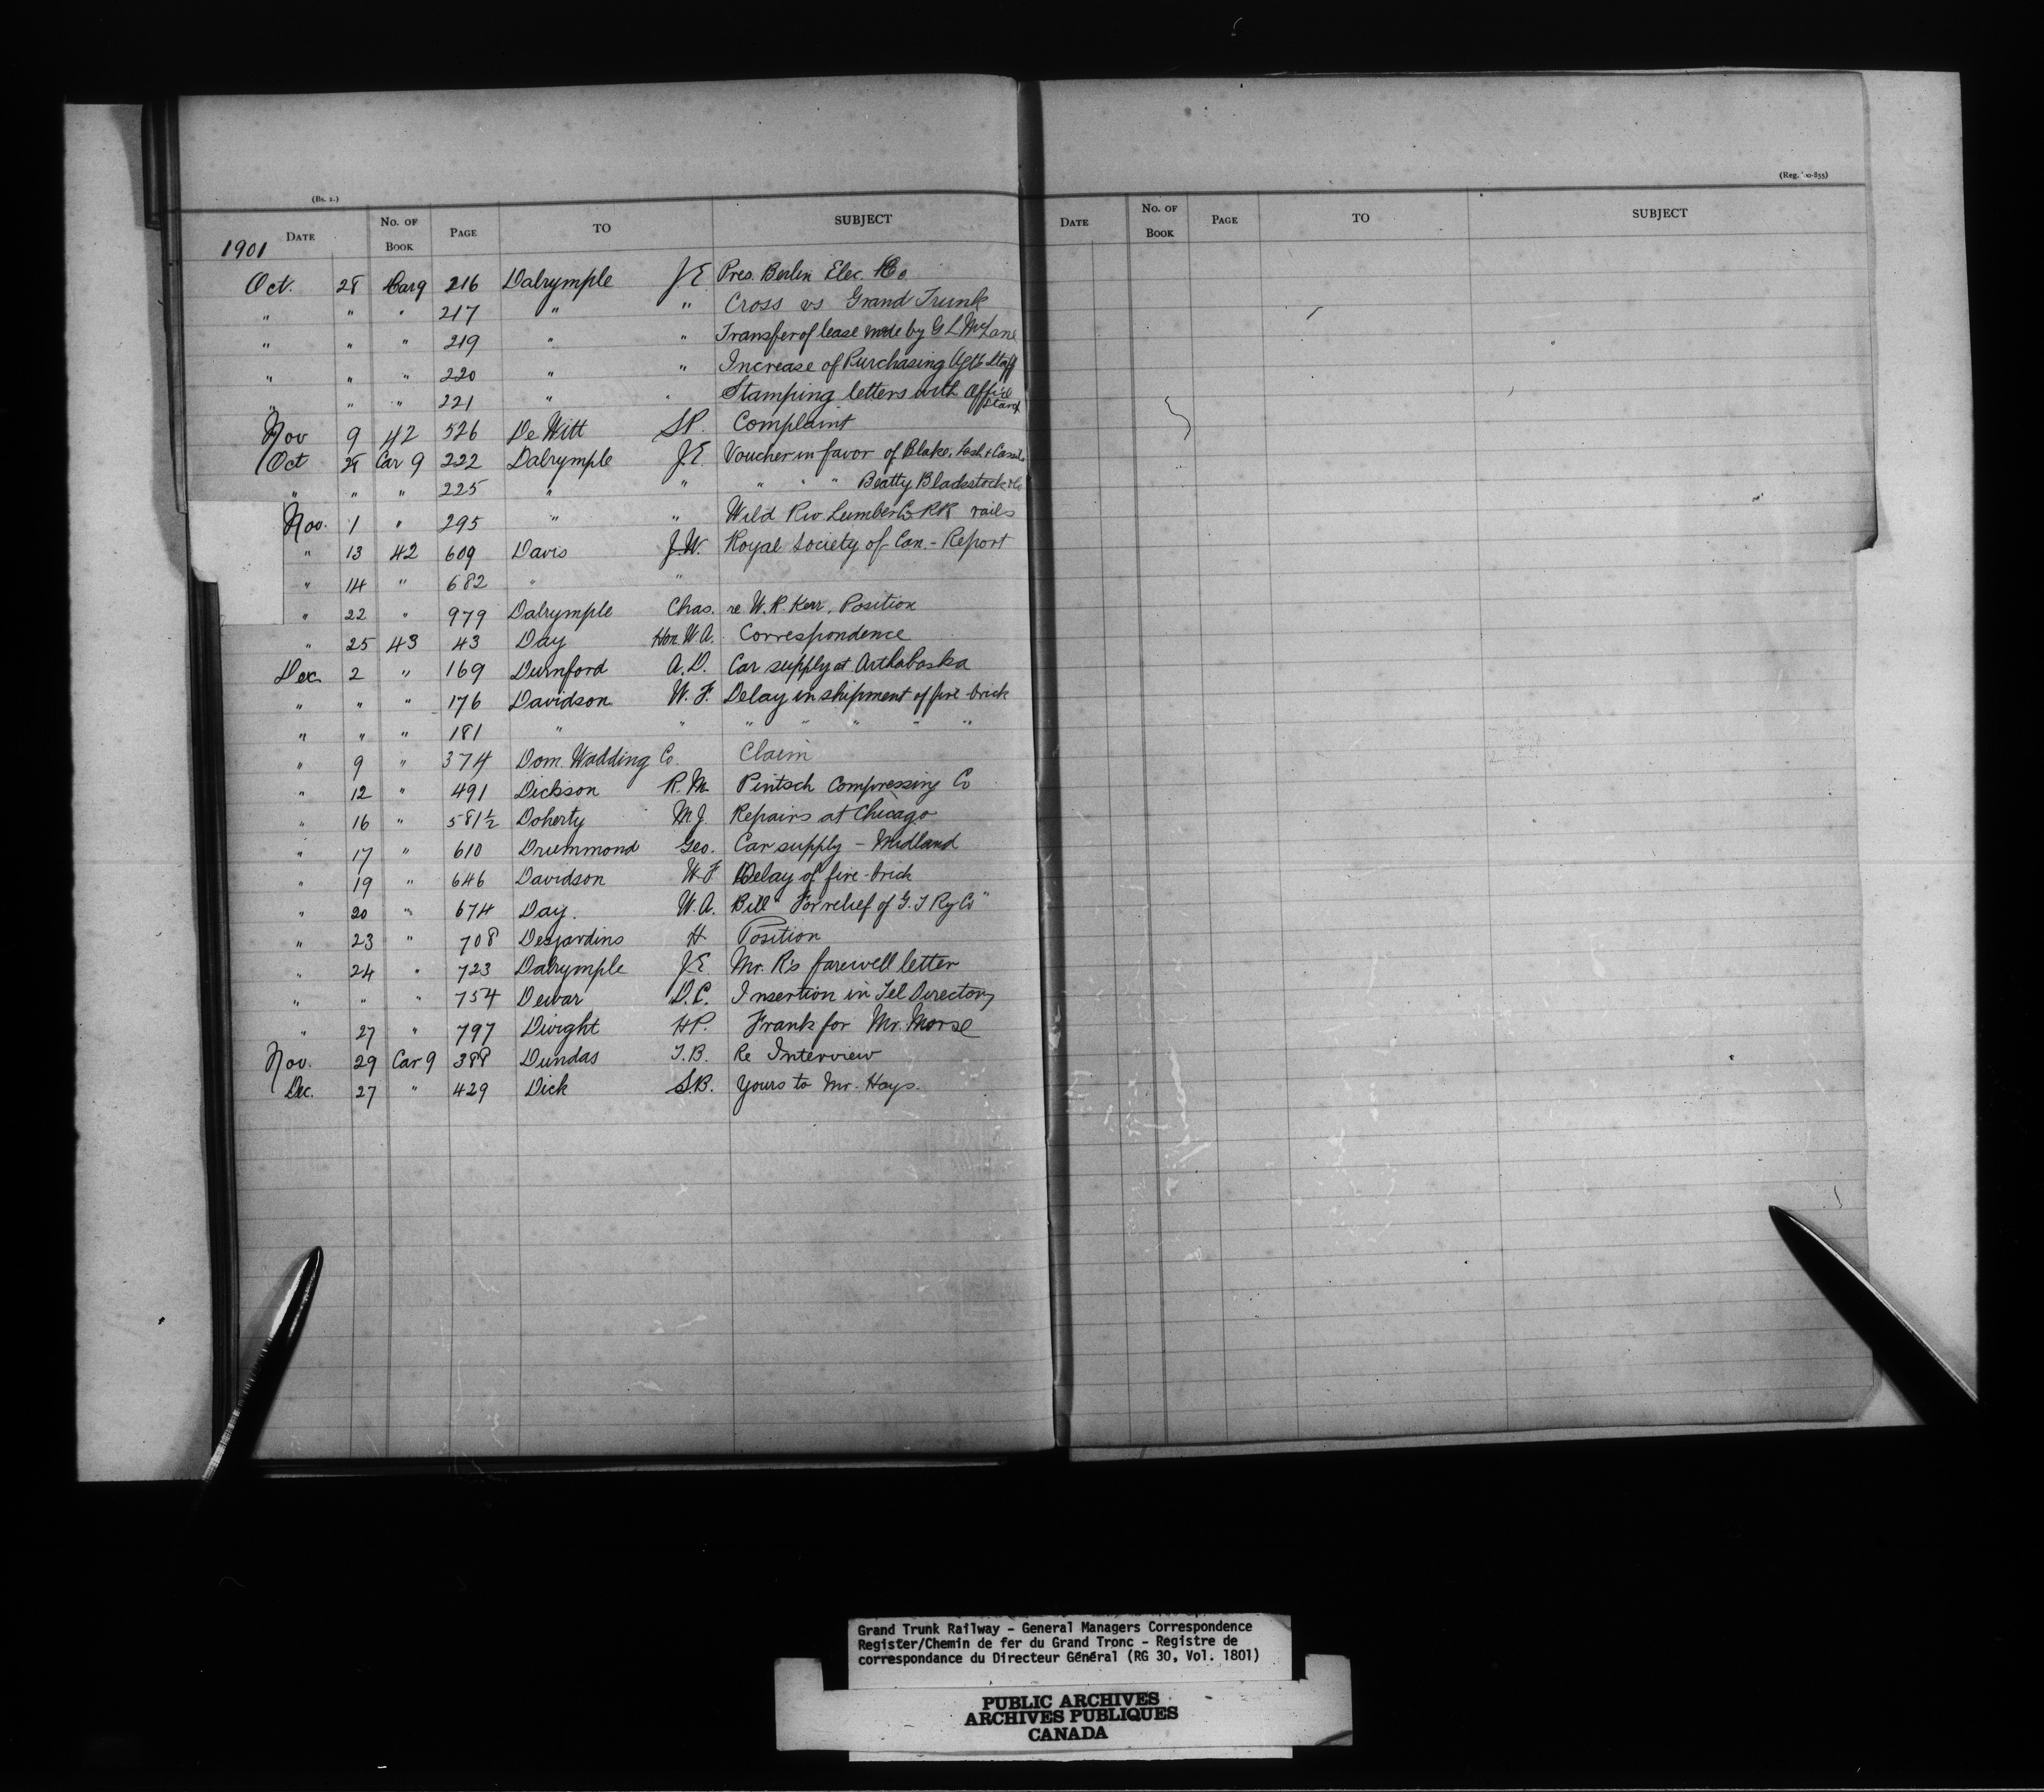 (Bs. 2.)
DATE No. OF BOOK PAGE TO SUBJECT
1901
Oct. 28 Car 9 216 Dalrymple J.E Pres. Berlin Elec. Co
" " " 217 " " Cross vs Grand Trunk
" " " 219 " " Transfer of lease made by G L McLane
" " " 220 " " Increase of Purchasing Agts Staff
" " " 221 " " Stamping letters with Office Stamp
Nov 9 42 526 De Witt S.P. Complaint
Oct 28 Car 9 222 Dalrymple J.E. Voucher in favor of Blake, Lash & Cassels
" " " 225 " " " " " Beatty Blackstock & Co
Nov. 1 " 295 " " Wild Riv Lumber Co RR rails
" 13 42 609 Davis J.W. Royal Society of Can. - Report
" 14 " 682 " "
" 22 " 979 Dalrymple Chas. re W.R. Kerr, Position
" 25 43 43 Day Hon. W.A. Correspondence
Dec 2 " 169 Durnford A.D. Car supply at Arthabaska
" " " 176 Davidson W. F. Delay in shipment of fire-brick
" " " 181 " " " " " " "
" 9 " 374 Dom. Wadding Co. Claim
" 12 " 491 Dickson R.M. Pintsch Compressing Co
" 16 " 581½ Doherty M.J. Repairs at Chicago
" 17 " 610 Drummond Geo. Car supply - Midland
" 19 " 646 Davidson W.F Delay of fire-brick
" 20 " 674 Day. W.A. Bill "For relief of G.T Ry Co"
" 23 " 708 Desjardins H Position
" 24 " 723 Dalrymple J.E Mr. R's farewell letter
" " " 754 Dewar D.C. Insertion in Tel Directory
" 27 " 797 Dwight H.P. Frank for Mr. Morse
Nov. 29 Car 9 388 Dundas T.B. Re Interview
Dec. 27 " 429 Dick S.B. Yours to Mr. Hays.
DATE No. OF BOOK PAGE TO SUBJECT
Grand Trunk Railway - General Managers Correspondence
Register/Chemin de fer du Grand Tronc - Registre de
correspondance du Directeur Général (RG 30, Vol. 1801)
PUBLIC ARCHIVES
ARCHIVES PUBLIQUES
CANADA